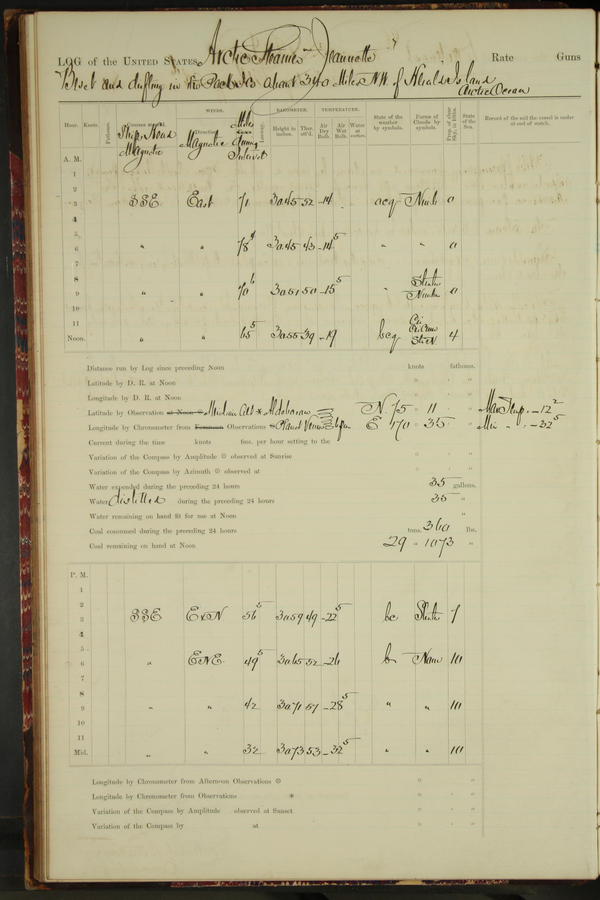 LOG of the UNITED STATES Arctic Steamer "Jeannette" Rate Guns
Beset and drifting in the Pack Ice about 340 Miles N.W. of Herald Island
Arctic Ocean
Hour. Knots. Fathoms. Ship's Head Magnetic WINDS. Direction Magnetic Miles during Interval Leeway. BAROMETER. Height in inches. Ther. att'd. TEMPERATURE. Air Dry Bulb. Air Wet Bulb. Water at surface. State of the weather by symbols. Forms of Clouds by symbols. Prop. of clear Sky, in 10ths. State of the Sea. Record of the sail the vessel is under at end of watch.
A. M.
1
2
3 SSE East 71 30.45 52 -14 ocq Nimb 0
4
5
6 " " 78⁴ 30.45 43 -14⁵ " " 0
7
8
9 " " 70⁶ 30.51 50 -15⁵ " Strata Nimbus 0
10
11
Noon. " " 65⁵ 30.55 39 -19 bcq Cir Cir Cum Str N 4
Distance run by Log since preceding Noon knots fathoms.
Latitude by D. R. at Noon ° ' "
Longitude by D. R. at Noon ° ' "
Latitude by Observation at Noon Meridian Alt * Aldebaran N. 75 ° 11 ' " Max Temp. -12²
Longitude by Chronometer from Forenoon Observations Planet Venus E 170 ° 35 ' " Min " -32⁵
Current during the time knots fms. per hour setting to the
Variation of the Compass by Amplitude observed at Sunrise ° ' "
Variation of the Compass by Azimuth observed at ° ' "
Water expended during the preceding 24 hours 35 gallons.
Water distilled during the preceding 24 hours 35 "
Water remaining on hand fit for use at Noon "
Coal consumed during the preceding 24 hours tons, 360 lbs.
Coal remaining on hand at Noon 29 " 1073 "
P. M.
1
2
3 SSE ExN 56⁵ 30.59 49 -22⁵ bc Strata 7
4
5
6 " ENE 49⁵ 30.65 52 -26 b None 10
7
8
9 " " 42 30.71 51 -28⁵ " " 10
10
11
Mid. " " 32 30.73 53 -32⁵ " " 10
Longitude by Chronometer from Afternoon Observations ° ' "
Longitude by Chronometer from Observations * ° ' "
Variation of the Compass by Amplitude observed at Sunset ° ' "
Variation of the Compass by at ° ' "